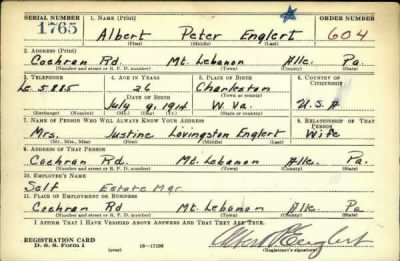 SERIAL NUMBER 1. NAME (Print) ORDER NUMBER
1765 Albert Peter Englert 604
(First) (Middle) (Last)
2. ADDRESS (Print)
Cochran Rd. Mt. Lebanon Alle. Pa.
(Number and street or R. F. D. number) (Town) (County) (State)
3. TELEPHONE 4. AGE IN YEARS 5. PLACE OF BIRTH 6. COUNTRY OF CITIZENSHIP
26 Charleston
DATE OF BIRTH (Town or county)
July 9, 1914 W. Va. U.S.A
(Exchange) (Number) (Mo.) (Day) (Yr.) (State or country)
7. NAME OF PERSON WHO WILL ALWAYS KNOW YOUR ADDRESS 8. RELATIONSHIP OF THAT PERSON
Mrs. Justine Livingston Englert Wife
(Mr., Mrs., Miss) (First) (Middle) (Last)
9. ADDRESS OF THAT PERSON
Cochran Rd. Mt. Lebanon Alle. Pa.
(Number and street or R. F. D. number) (Town) (County) (State)
10. EMPLOYER'S NAME
Self Estate Mgr.
11. PLACE OF EMPLOYMENT OR BUSINESS
Cochran Rd Mt. Lebanon Alle. Pa.
(Number and street or R. F. D. number) (Town) (County) (State)
I AFFIRM THAT I HAVE VERIFIED ABOVE ANSWERS AND THAT THEY ARE TRUE.
REGISTRATION CARD
D. S. S. Form 1 (over) 16—17105 Albert P. Englert